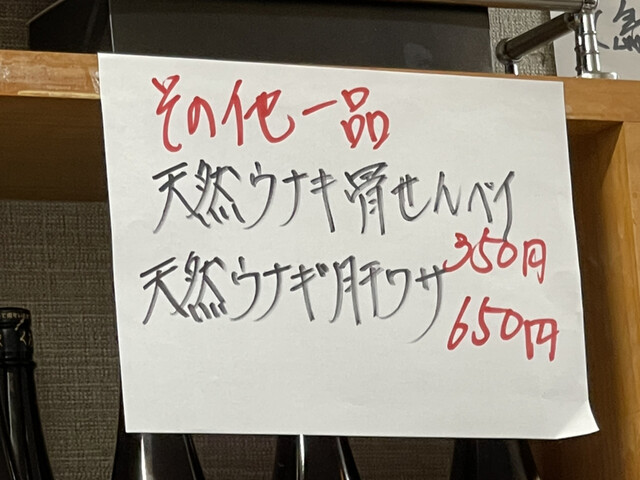 その他一品
天然ウナギ骨せんベイ
350円
天然ウナギ肝ワサ
650円